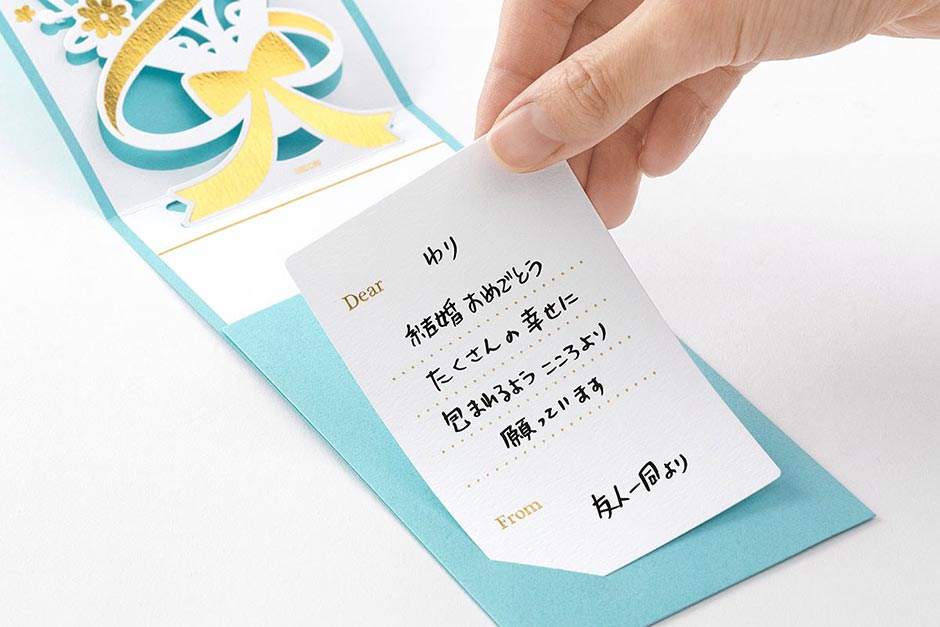 Dear ゆり
結婚おめでとう
たくさんの幸せに
包まれるよう こころより
願っています
From 友人一同より